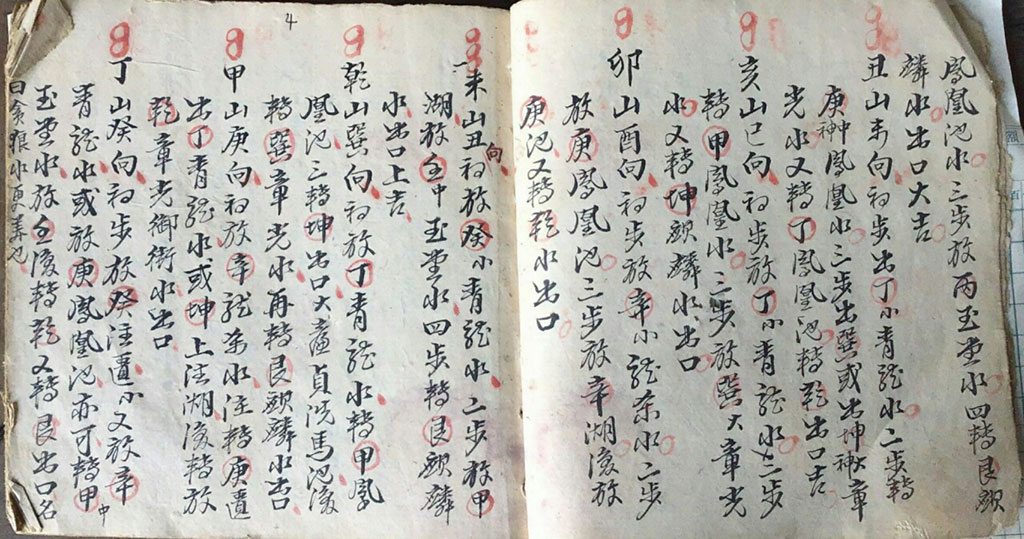 鳳凰池水三步放丙玉堂水四轉艮麒
麟水出口大吉
丑山未向初步出丁小青龍水二步轉
庚中神鳳凰水三步出巽或出坤神大章
光水又轉丁鳳凰池轉乾出口吉
亥山巳向初步放丁小青龍水二步
轉甲鳳凰水三步放巽大章光
水又轉坤麒麟水出口
卯山酉向初步放辛小龍水二步
放庚鳳凰池三步放辛湖後放
庚池又轉乾水出口
4
未山丑向初放癸小青龍水二步放甲
湖放壬中玉堂水四步轉艮麒麟
水出口上吉
乾山巽向初放丁青龍水轉甲鳳
凰池三轉坤出口大廉貞洗馬池後
轉巽章光水再轉艮麒麟水吉
甲山庚向初放辛龍水注轉庚
出丁青龍水或坤上注湖後轉放
乾章光御街水出口
丁山癸向初步放癸注小又放辛
青龍水或放庚鳳凰池亦可轉甲中
玉堂水放壬後轉乾又轉艮出口名
曰貪狼水更美也